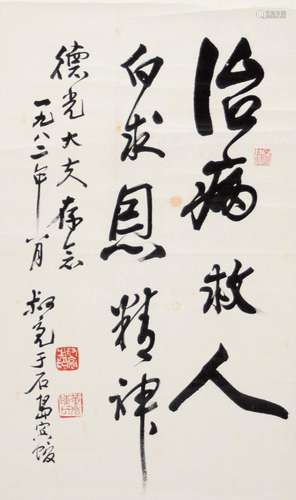 治病救人
白求恩精神
德光大夫存念
一九八二年八月
叔亮于石岛宾馆